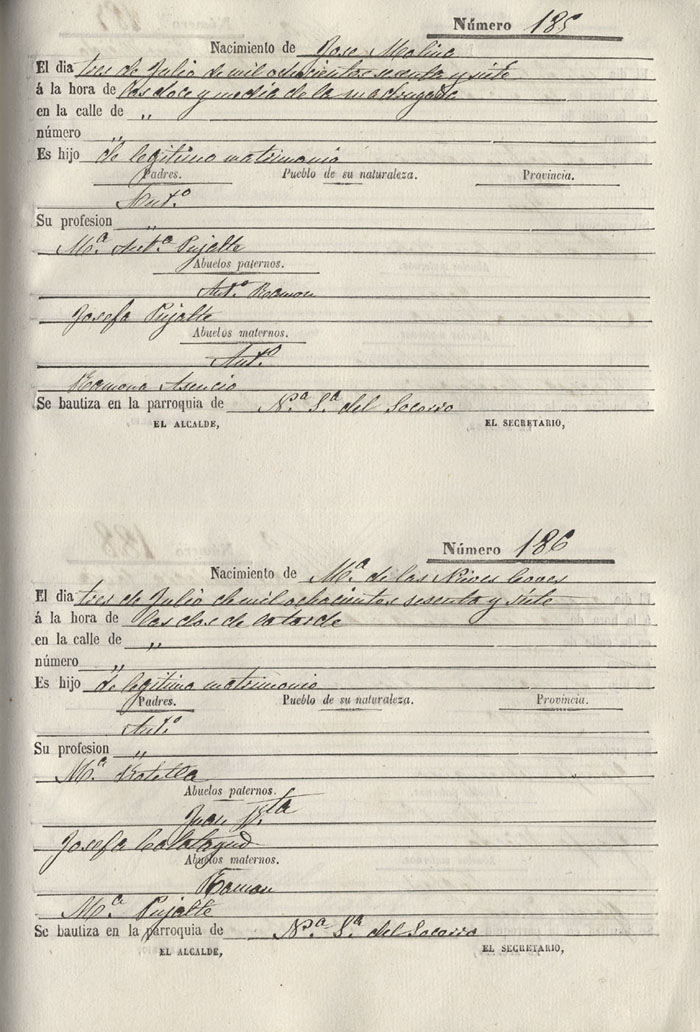 Número 185
Nacimiento de Jose Molina
El dia tres de Julio de mil ochocientos sesenta y siete
á la hora de las doce y media de la madrugada
en la calle de „
número „
Es hijo de legitimo matrimonio
Padres. Pueblo de su naturaleza. Provincia.
Antº
Su profesion „
Mª Antª Pujalte
Abuelos paternos.
Antº Ramon
Josefa Pujalte
Abuelos maternos.
Antº
Ramona Asencio
Se bautiza en la parroquia de Nª Sª del Socorro
EL ALCALDE, EL SECRETARIO,
Número 186
Nacimiento de Mª de las Nieves
El dia tres de Julio de mil ochocientos sesenta y siete
á la hora de las dos de la tarde
en la calle de „
número „
Es hijo de legitimo matrimonio
Padres. Pueblo de su naturaleza. Provincia.
Antº
Su profesion „
Mª Botella
Abuelos paternos.
Juan Bta
Josefa Calatayud
Abuelos maternos.
Ramon
Mª Pujalte
Se bautiza en la parroquia de Nª Sª del Socorro
EL ALCALDE, EL SECRETARIO,